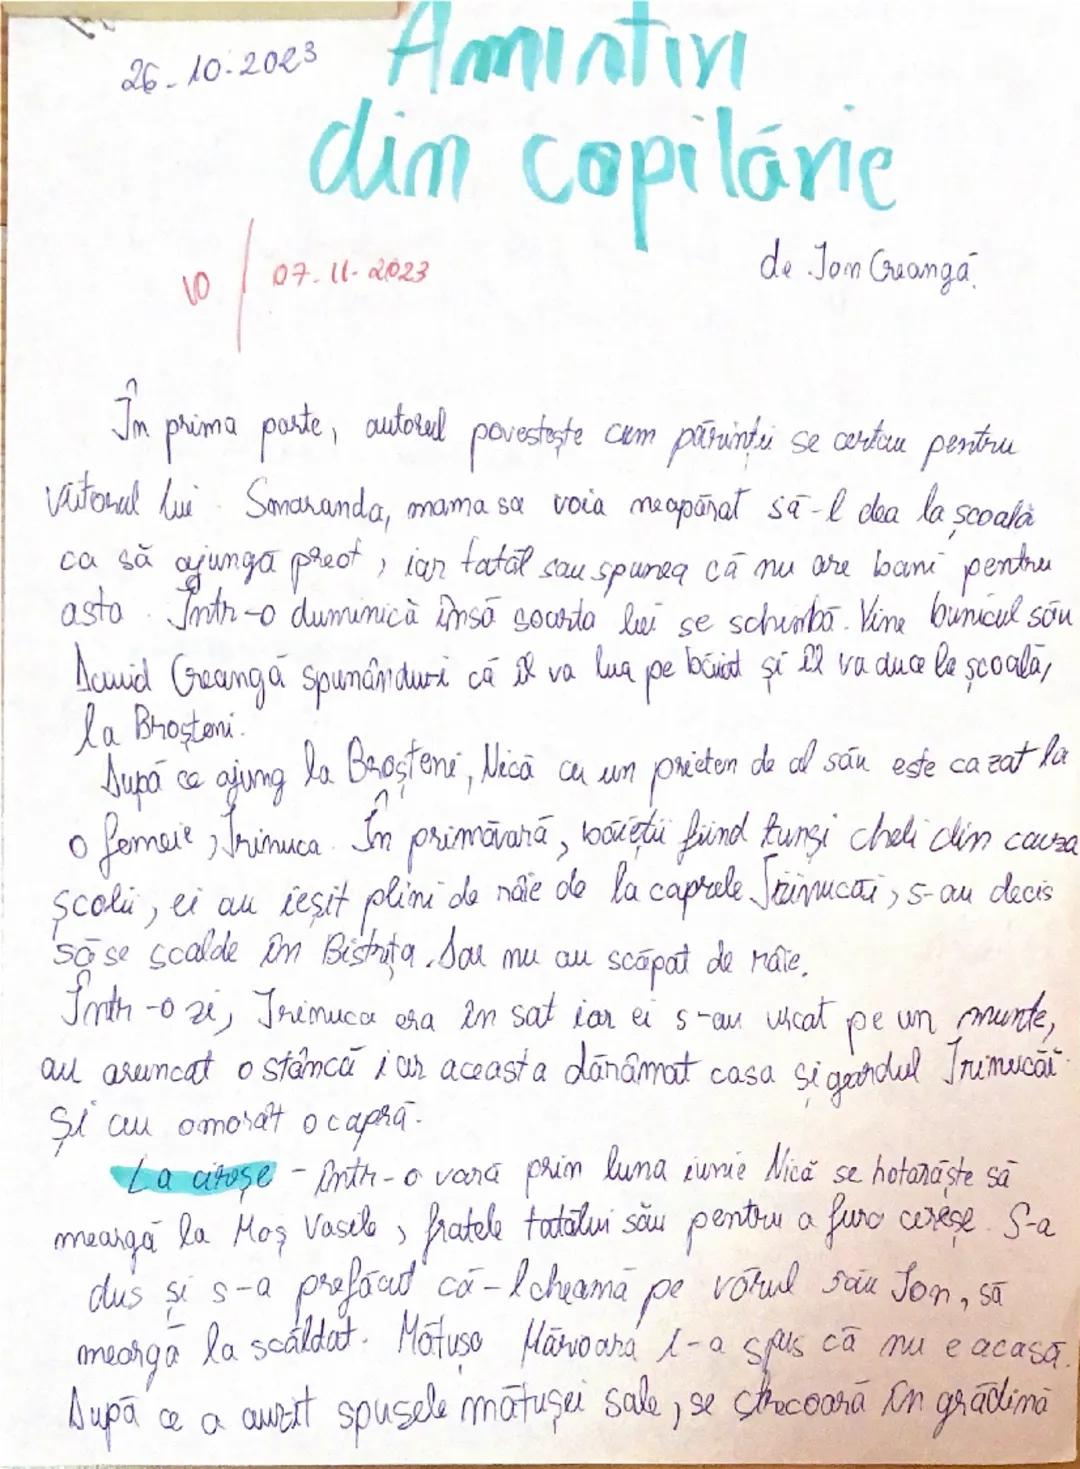 26-10-2023
Amintiri
din copilărie
10/07-11-2023
de Ion Creangă
În prima parte, autorul povestește cum părinții se certau pentru
viitorul lui. Smaranda, mama sa voia neapărat să-l dea la școală
ca să ajungă preot, iar tatăl său spunea că nu are bani pentru
asta. Într-o duminică însă soarta lui se schimbă. Vine bunicul său
David Creangă spunând că îl va lua pe băiat și îl va duce la școală,
la Broșteni.
După ce ajung la Broșteni, Nică cu un prieten de al său este cazat la
o femeie, Irinuca. În primăvară, băieții fiind tunși cheli din cauza
școlii, ei au ieșit plini de râie de la caprele Irinucăi, s-au decis
să se scalde în Bistrița. Dar nu au scăpat de râie.
Într-o zi, Irinuca era în sat iar ei s-au urcat pe un munte,
au aruncat o stâncă iar aceasta dărâmat casa și gardul Irinucăi
și au omorât o capră.
La cireșe - într-o vară prin luna iunie Nică se hotărăște să
meargă la Moș Vasile, fratele tatălui său pentru a fura cireșe. S-a
dus și s-a prefăcut că-l cheamă pe vărul său Ion, să
meargă la scăldat. Mătușa Mărioara i-a spus că nu e acasă.
După ce a auzit spusele mătușei sale, se strecoară în grădină